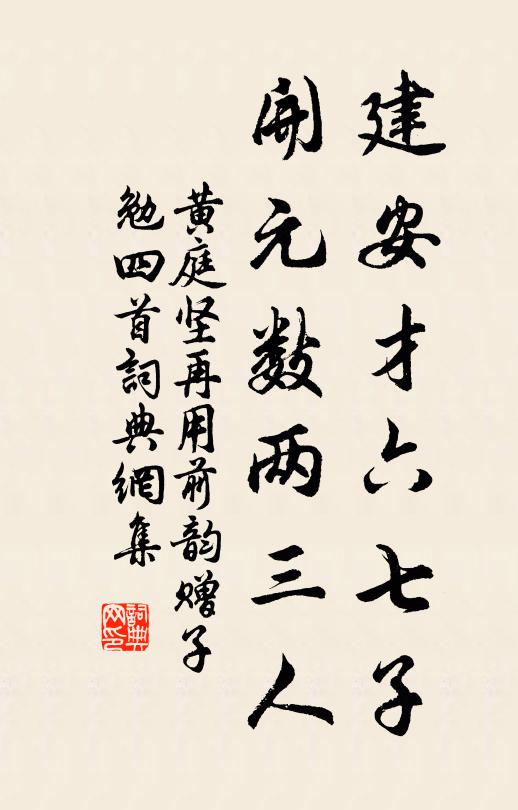 建安才六七子
開元数两三人
黄庭坚再用前韵赠子
勉四首詞典網集
詞典网印